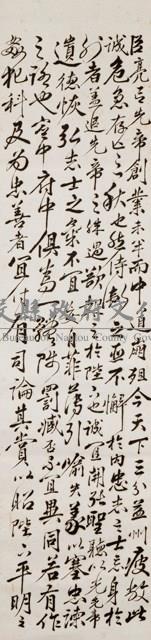 臣亮言先帝創業未半而中道崩殂今天下三分益州疲敝此
誠危急存亡之秋也然侍衛之臣不懈於內忠志之士忘身於
外者蓋追先帝之殊遇欲報之於陛下也誠宜開張聖聽以光先帝
遺德恢弘志士之氣不宜妄自菲薄引喻失義以塞忠諫
之路也宮中府中俱為一體陟罰臧否不宜異同若有作
姦犯科及為忠善者宜付有司論其賞以昭陛下平明之
縣政府文
Bureau of Nantou County Gover